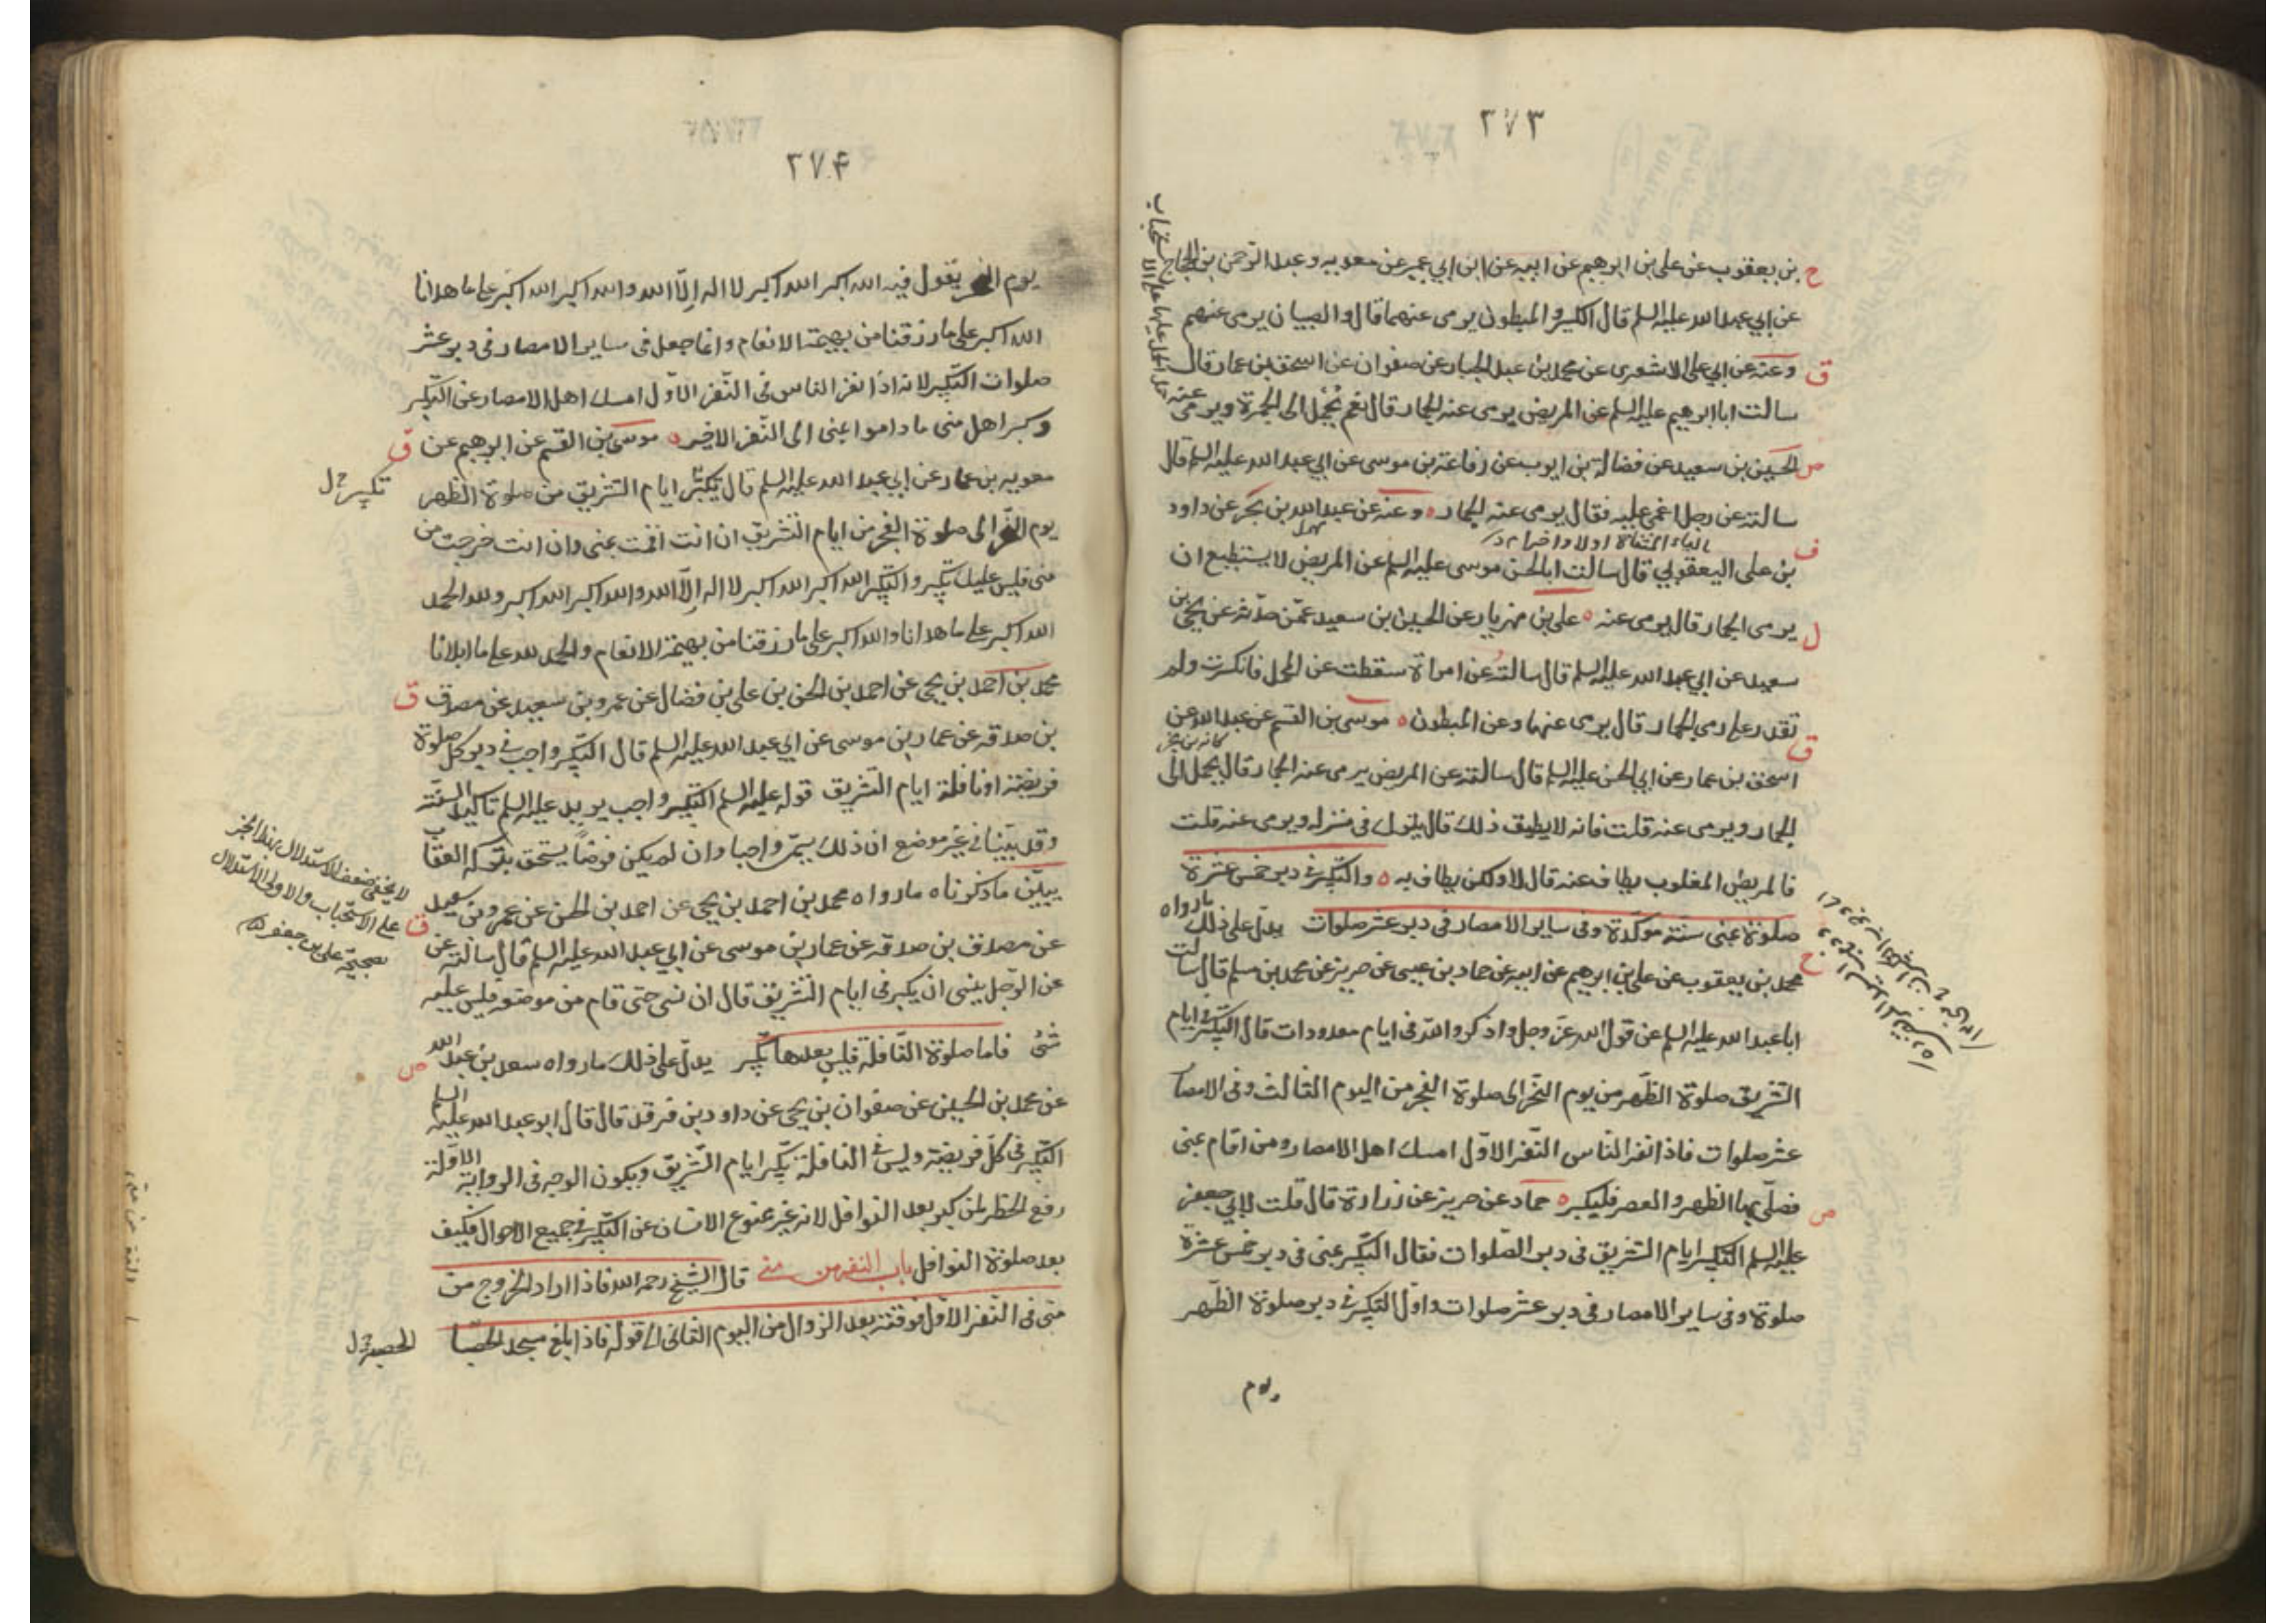 ٢٧٣
ح بن يعقوب عن على بن ابرهيم عن ابيه عن ابن ابي عمير عن معويه وعبد الرحمن بن الحجاج
عن ابي عبد الله عليه السلم قال الكسير والمبطون يرمى عنهما قال والصبيان يرمى عنهم
ق وعنه عن ابي على الاشعرى عن محمد بن عبد الجبار عن صفوان عن اسحق بن عمار قال
سالت ابا ابرهيم عليه السلم عن المريض يرمى عنه الجمار قال نعم يُحمل الى الجمرة ويرمى عنه
ص الحسين بن سعيد عن فضالة بن ايوب عن رفاعة بن موسى عن ابي عبد الله عليه السلم قال
سالته عن رجل اغمى عليه فقال يرمى عنه الجمار ه وعنه عن عبد الله بن بحر عن داود
الياء المثناة اولا واخرا
ف بن على اليعقوبي قال سالت ابا الحسن موسى عليه السلم عن المريض لا يستطيع ان
ل يرمى الجمار قال يرمى عنه ه على بن مهزيار عن الحسين بن سعيد عمّن حدّثه عن يحيى بن
سعيد عن ابي عبد الله عليه السلم قال سالتُه عن امراة سقطت عن المحمل فانكسرت ولم
تقدر على رمى الجمار قال يرمى عنها وعن المبطون ه موسى بن القسم عن عبد الله عن
كانه بن بحر
ق اسحق بن عمار عن ابي الحسن عليه السلم قال سالته عن المريض يرمى عنه الجمار قال يحمل الى
الجمار ويرمى عنه قلت فانه لا يطيق ذلك قال يترك فى منزله ويرمى عنه قلت
فالمريض المغلوب يطاف عنه قال لا ولكن يطاف به ه والتكبير فى دبر خمس عشرة
صلوة بمنى سنّة موكّدة وفى ساير الامصار فى دبر عشر صلوات يدلّ على ذلك ما رواه
ح محمد بن يعقوب عن على بن ابرهيم عن ابيه عن حماد بن عيسى عن حريز عن محمد بن مسلم قال سالت
ابا عبد الله عليه السلم عن قول الله عزّ وجل واذكروا الله فى ايام معدودات قال التكبير فى ايام
التشريق صلوة الظهر من يوم النحر الى صلوة الفجر من اليوم الثالث وفى الامصار
عشر صلوات فاذا نفر الناس النّفر الاوّل امسك اهل الامصار ومن اقام بمنى
فصلّى بها الظهر والعصر فليكبر ه حماد عن حريز عن زرارة قال قلت لابي جعفر ص
عليه السلم التكبير ايام التشريق فى دبر الصّلوات فقال التكبير بمنى فى دبر خمس عشرة
صلوة وفى ساير الامصار فى دبر عشر صلوات واوّل التكبير فى دبر صلوة الظّهر
يوم
٢٧۴
يوم النحر يقول فيه الله اكبر الله اكبر لا اله الّا الله والله اكبر الله اكبر على ما هدانا
الله اكبر على ما رزقنا من بهيمة الانعام وانما جعل فى ساير الامصار فى دبر عشر
صلوات التكبير لانه اذا نفر الناس فى النّفر الاوّل امسك اهل الامصار عن التكبير
وكبر اهل منى ما داموا بمنى الى النّفر الاخير ه موسى بن القسم عن ابرهيم عن ق
معويه بن عمار عن ابي عبد الله عليه السلم قال تكبّر ايام التشريق من صلوة الظهر
تكبير خ ل
يوم النحر الى صلوة الفجر من ايام التشريق ان انت اقمت بمنى وان انت خرجت من
منى فليس عليك تكبير والتكبير الله اكبر الله اكبر لا اله الّا الله والله اكبر الله اكبر ولله الحمد
الله اكبر على ما هدانا والله اكبر على ما رزقنا من بهيمة الانعام والحمد لله على ما ابلانا
محمد بن احمد بن يحيى عن احمد بن الحسن بن على بن فضال عن عمرو بن سعيد عن مصدق ق
بن صدقه عن عمار بن موسى عن ابي عبد الله عليه السلم قال التكبير واجب فى دبر كل صلوة
فريضة او نافلة ايام التشريق قوله عليه السلم التكبير واجب يريد عليه السلم تاكيد السنّة
وقد بيّنا فى غير موضع ان ذلك يسمّى واجبا وان لم يكن فرضًا يستحق بتركه العقاب
يبيّن ما ذكرناه ما رواه محمد بن احمد بن يحيى عن احمد بن الحسن عن عمرو بن سعيد ق
عن مصدق بن صدقه عن عمار بن موسى عن ابي عبد الله عليه السلم قال سالته عن
لا يخفى ضعف الاستدلال بهذا الخبر
على الاستحباب والاولى الاستدلال
بصحيحة على بن جعفر
عن الرّجل ينسى ان يكبر فى ايام التشريق قال ان نسى حتى قام من موضعه فليس عليه
شئ فاما صلوة النّافلة فليس بعدها تكبير يدلّ على ذلك ما رواه سعد بن عبد الله ص
عن محمد بن الحسين عن صفوان بن يحيى عن داود بن فرقد قال قال ابو عبد الله عليه السلم
التكبير فى كلّ فريضة وليس فى النافلة تكبير ايام التّشريق ويكون الوجه فى الرواية الاوّلة
رفع الحظر لمن كبر بعد النوافل لانه غير ممنوع الانسان عن التكبير فى جميع الاحوال فكيف
بعد صلوة النوافل باب النفر من منى قال الشّيخ رحمه الله فاذا اراد الخروج من
منى فى النّفر الاوّل فوقته بعد الزوال من اليوم الثانى الى قوله فاذا بلغ مسجد الحصبا
الحصبة خ ل